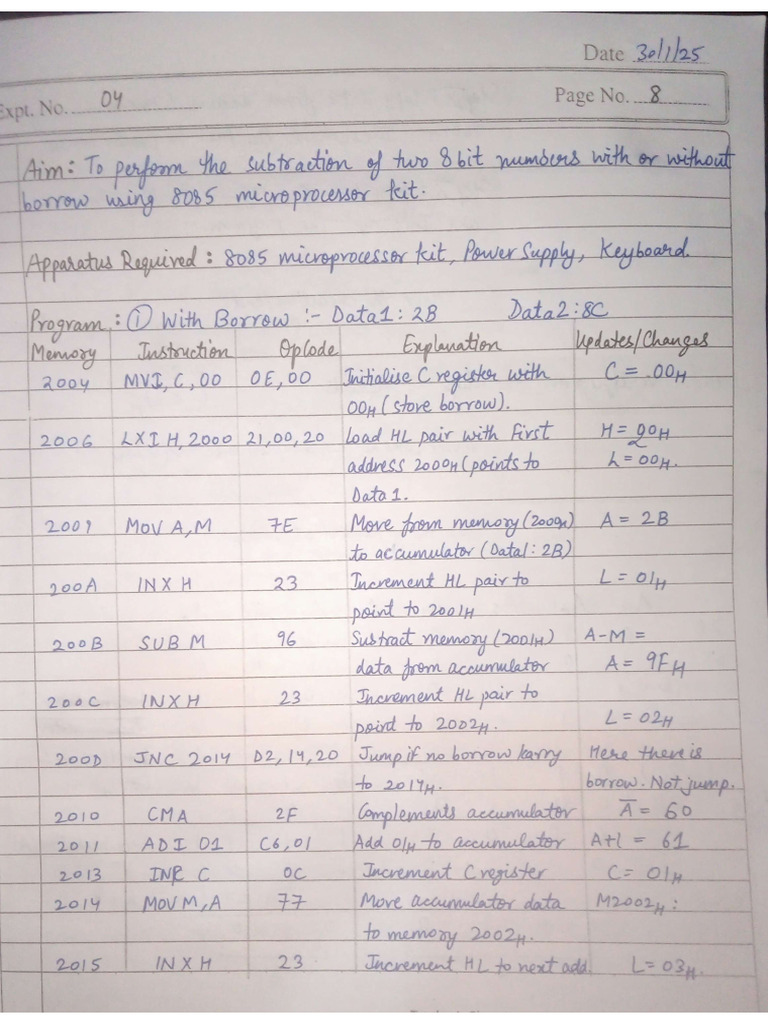 Date 30/1/25
Expt. No. 04 Page No. 8
Aim: To perform the subtraction of two 8 bit numbers with or without
borrow using 8085 microprocessor kit.
Apparatus Required: 8085 microprocessor kit, Power Supply, Keyboard.
Program: ① With Borrow :- Data1: 2B Data2: 8C
Memory Instruction OpCode Explanation Updates/Changes
2004 MVI, C, 00 0E, 00 Initialise C register with C = 00H
00H (store borrow).
2006 LXI H, 2000 21, 00, 20 Load HL pair with first H = 20H
address 2000H (points to L = 00H.
Data 1.
2009 MOV A, M 7E Move from memory (2000H) A = 2B
to accumulator (Data1: 2B)
200A INX H 23 Increment HL pair to L = 01H
point to 2001H
200B SUB M 96 Sustract memory (2001H) A-M =
data from accumulator A = 9FH
200C INX H 23 Increment HL pair to
point to 2002H. L = 02H
200D JNC 2014 D2, 14, 20 Jump if no borrow karry Here there is
to 2014H. borrow. Not jump.
2010 CMA 2F Complements accumulator A̅ = 60
2011 ADI 01 C6, 01 Add 01H to accumulator A+1 = 61
2013 INR C 0C Increment C register C = 01H
2014 MOV M, A 77 Move accumulator data M2002H:
to memory 2002H.
2015 INX H 23 Increment HL to next add. L = 03H.